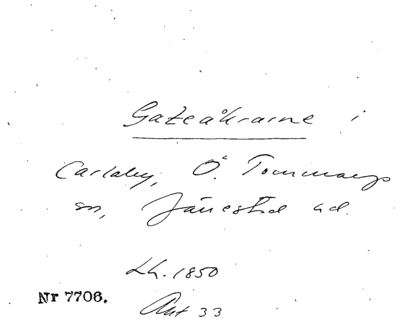 Gateåkrarne i
Carlaby, Ö. Tommarps
sn, Järrestad hd.
Lh. 1850
Nr 7706.
Akt 33